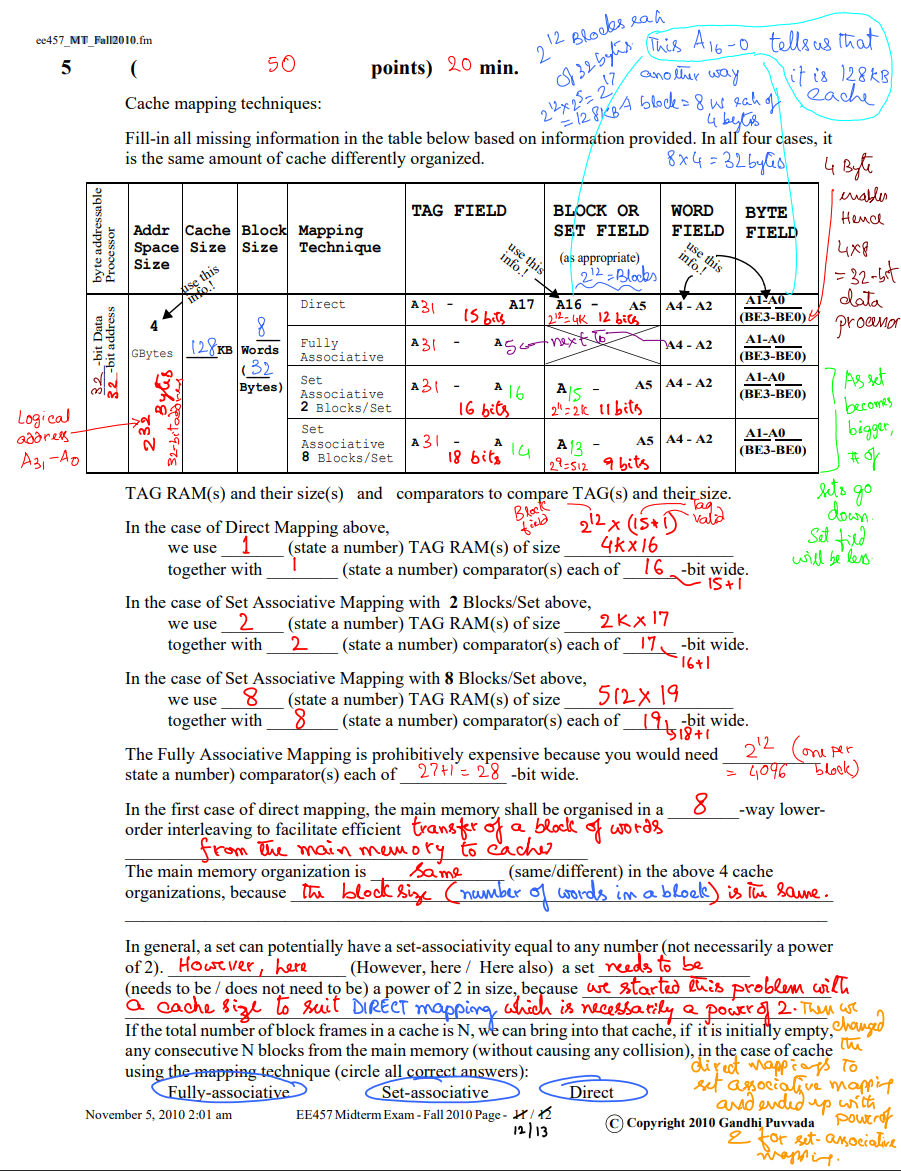 ee457_MT_Fall2010.fm
5 ( 50 points) 20 min.
2^12 Blocks each
of 32 bytes
2^12 x 2^5 = 2^17
= 128KB
This A16-0 tells us that
another way it is 128KB
cache
A block = 8 w each of
4 bytes
8 x 4 = 32 bytes
Cache mapping techniques:
Fill-in all missing information in the table below based on information provided. In all four cases, it
is the same amount of cache differently organized.
4 Byte
enables
Hence
4x8
= 32-bit
data
processor
byte addressable
Processor
Addr
Space
Size
Cache
Size
Block
Size
Mapping
Technique
TAG FIELD
BLOCK OR
SET FIELD
(as appropriate)
2^12 = Blocks
WORD
FIELD
BYTE
FIELD
use this
info.!
use this
info.!
use this
info.!
32 -bit Data
32 -bit address
4
GBytes
2^32 Bytes
32-bit address
128KB
8
Words
(32
Bytes)
Direct A31 - A17 A16 - A5 A4 - A2 A1-A0
15 bits 2^12=4K 12 bits (BE3-BE0)
Fully
Associative A31 - A5 next to A4 - A2 A1-A0
(BE3-BE0)
Set
Associative
2 Blocks/Set A31 - A16 A15 - A5 A4 - A2 A1-A0
16 bits 2^11=2K 11 bits (BE3-BE0)
Set
Associative
8 Blocks/Set A31 - A14 A13 - A5 A4 - A2 A1-A0
18 bits 2^9=512 9 bits (BE3-BE0)
Logical
address
A31-A0
As set
becomes
bigger,
# of
sets go
down.
Set fild
will be less.
TAG RAM(s) and their size(s) and comparators to compare TAG(s) and their size.
Block
field
Tag
valid
In the case of Direct Mapping above, 2^12 x (15+1)
we use 1 (state a number) TAG RAM(s) of size 4K x 16
together with 1 (state a number) comparator(s) each of 16 -bit wide.
15+1
In the case of Set Associative Mapping with 2 Blocks/Set above,
we use 2 (state a number) TAG RAM(s) of size 2K x 17
together with 2 (state a number) comparator(s) each of 17 -bit wide.
16+1
In the case of Set Associative Mapping with 8 Blocks/Set above,
we use 8 (state a number) TAG RAM(s) of size 512 x 19
together with 8 (state a number) comparator(s) each of 19 -bit wide.
18+1
The Fully Associative Mapping is prohibitively expensive because you would need 2^12 (one per
= 4096 block)
state a number) comparator(s) each of 27+1 = 28 -bit wide.
In the first case of direct mapping, the main memory shall be organised in a 8 -way lower-
order interleaving to facilitate efficient transfer of a block of words
from the main memory to cache
The main memory organization is same (same/different) in the above 4 cache
organizations, because the block size (number of words in a block) is the same.
In general, a set can potentially have a set-associativity equal to any number (not necessarily a power
of 2). However, here (However, here / Here also) a set needs to be
(needs to be / does not need to be) a power of 2 in size, because we started this problem with
a cache size to suit DIRECT mapping which is necessarily a power of 2. Then we
If the total number of block frames in a cache is N, we can bring into that cache, if it is initially empty, changed
any consecutive N blocks from the main memory (without causing any collision), in the case of cache the
using the mapping technique (circle all correct answers):
direct mappings to
set associative mapping
and ended up with
power of
2 for set-associative
mapping.
Fully-associative Set-associative Direct
November 5, 2010 2:01 am EE457 Midterm Exam - Fall 2010 Page - 11 / 12
12 / 13
© Copyright 2010 Gandhi Puvvada